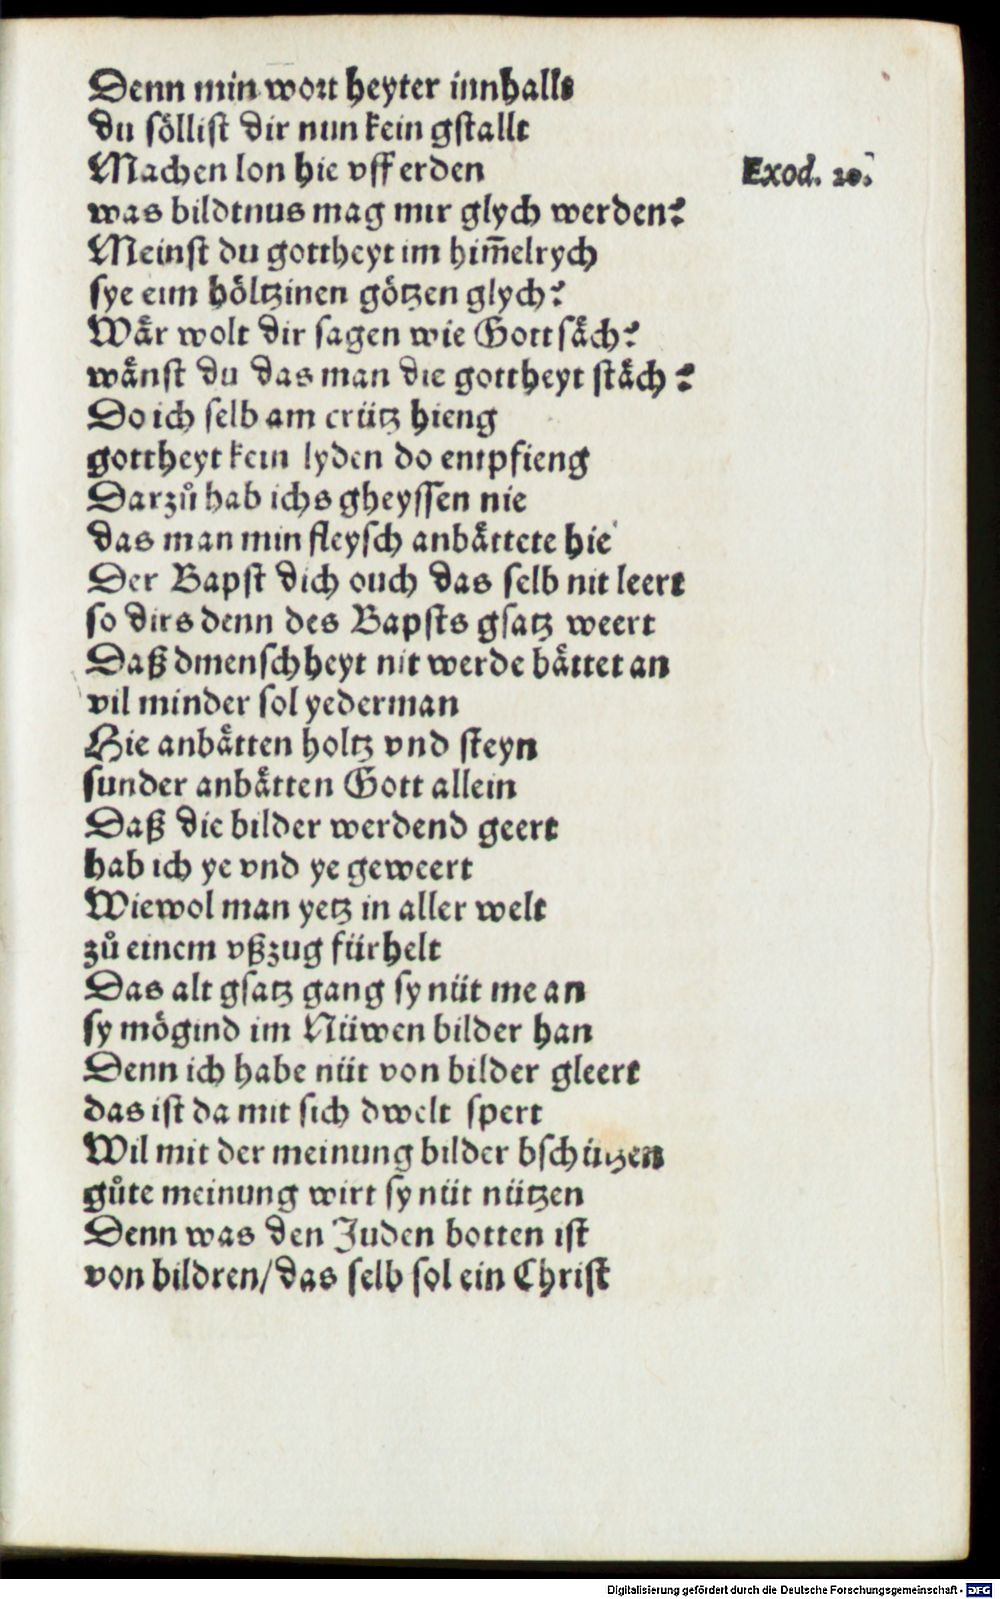 Denn min wort heyter innhallt
du söllist dir nun kein gstallt
Machen lon hie vff erden
Exod. 20.
was bildtnus mag mir glych werden?
Meinst du gottheyt im him̃elrych
sye eim höltzinen götzen glych?
Wår wolt dir sagen wie Gott såch?
wånst du das man die gottheyt ståch?
Do ich selb am crütz hieng
gottheyt kein lyden do empfieng
Darzů hab ichs gheyssen nie
das man min fleysch anbåttete hie
Der Bapst dich ouch das selb nit leert
so dirs denn des Bapsts gsatz weert
Daß dmenschheyt nit werde båttet an
vil minder sol yederman
Hie anbåtten holtz vnd steyn
sunder anbåtten Gott allein
Daß die bilder werdend geert
hab ich ye vnd ye geweert
Wiewol man yetz in aller welt
zů einem vßzug fürhelt
Das alt gsatz gang sy nüt me an
sy mögind im Nüwen bilder han
Denn ich habe nüt von bilder gleert
das ist da mit sich dwelt spert
Wil mit der meinung bilder bschützen
gůte meinung wirt sy nüt nützen
Denn was den Juden botten ist
von bildren/das selb sol ein Christ
Digitalisierung gefördert durch die Deutsche Forschungsgemeinschaft - DFG